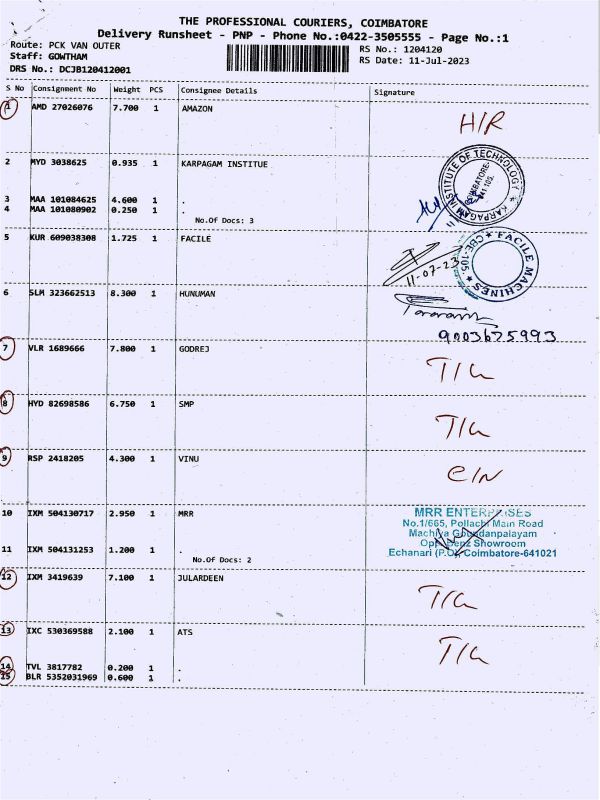 THE PROFESSIONAL COURIERS, COIMBATORE
Delivery Runsheet - PNP - Phone No.:0422-3505555 - Page No.:1
Route: PCK VAN OUTER
Staff: GOWTHAM
DRS No.: DCJB120412001
RS No.: 1204120
RS Date: 11-Jul-2023
S No Consignment No Weight PCS Consignee Details Signature
1 AMD 27026076 7.700 1 AMAZON
H/R
2 MYD 3038625 0.935 1 KARPAGAM INSTITUE
KARPAGAM INSTITUTE OF TECHNOLOGY
COIMBATORE-
641 105.
3 MAA 101084625 4.600 1 .
4 MAA 101080902 0.250 1 .
No.Of Docs: 3
5 KUR 609038308 1.725 1 FACILE
11-07-23
FACILE MACHINES
CBE-105.
6 SLM 323662513 8.300 1 HUNUMAN
9003675993
7 VLR 1689666 7.800 1 GODREJ
8 HYD 82698586 6.750 1 SMP
9 RSP 2418205 4.300 1 VINU
10 IXM 504130717 2.950 1 MRR
MRR ENTERPRISES
No.1/665, Pollachi Main Road
Machiya Goundanpalayam
Opp. Benz Showroom
Echanari (P.O), Coimbatore-641021
11 IXM 504131253 1.200 1 .
No.Of Docs: 2
12 IXM 3419639 7.100 1 JULARDEEN
13 IXC 530369588 2.100 1 ATS
14 TVL 3817782 0.200 1 .
15 BLR 5352031969 0.600 1 .